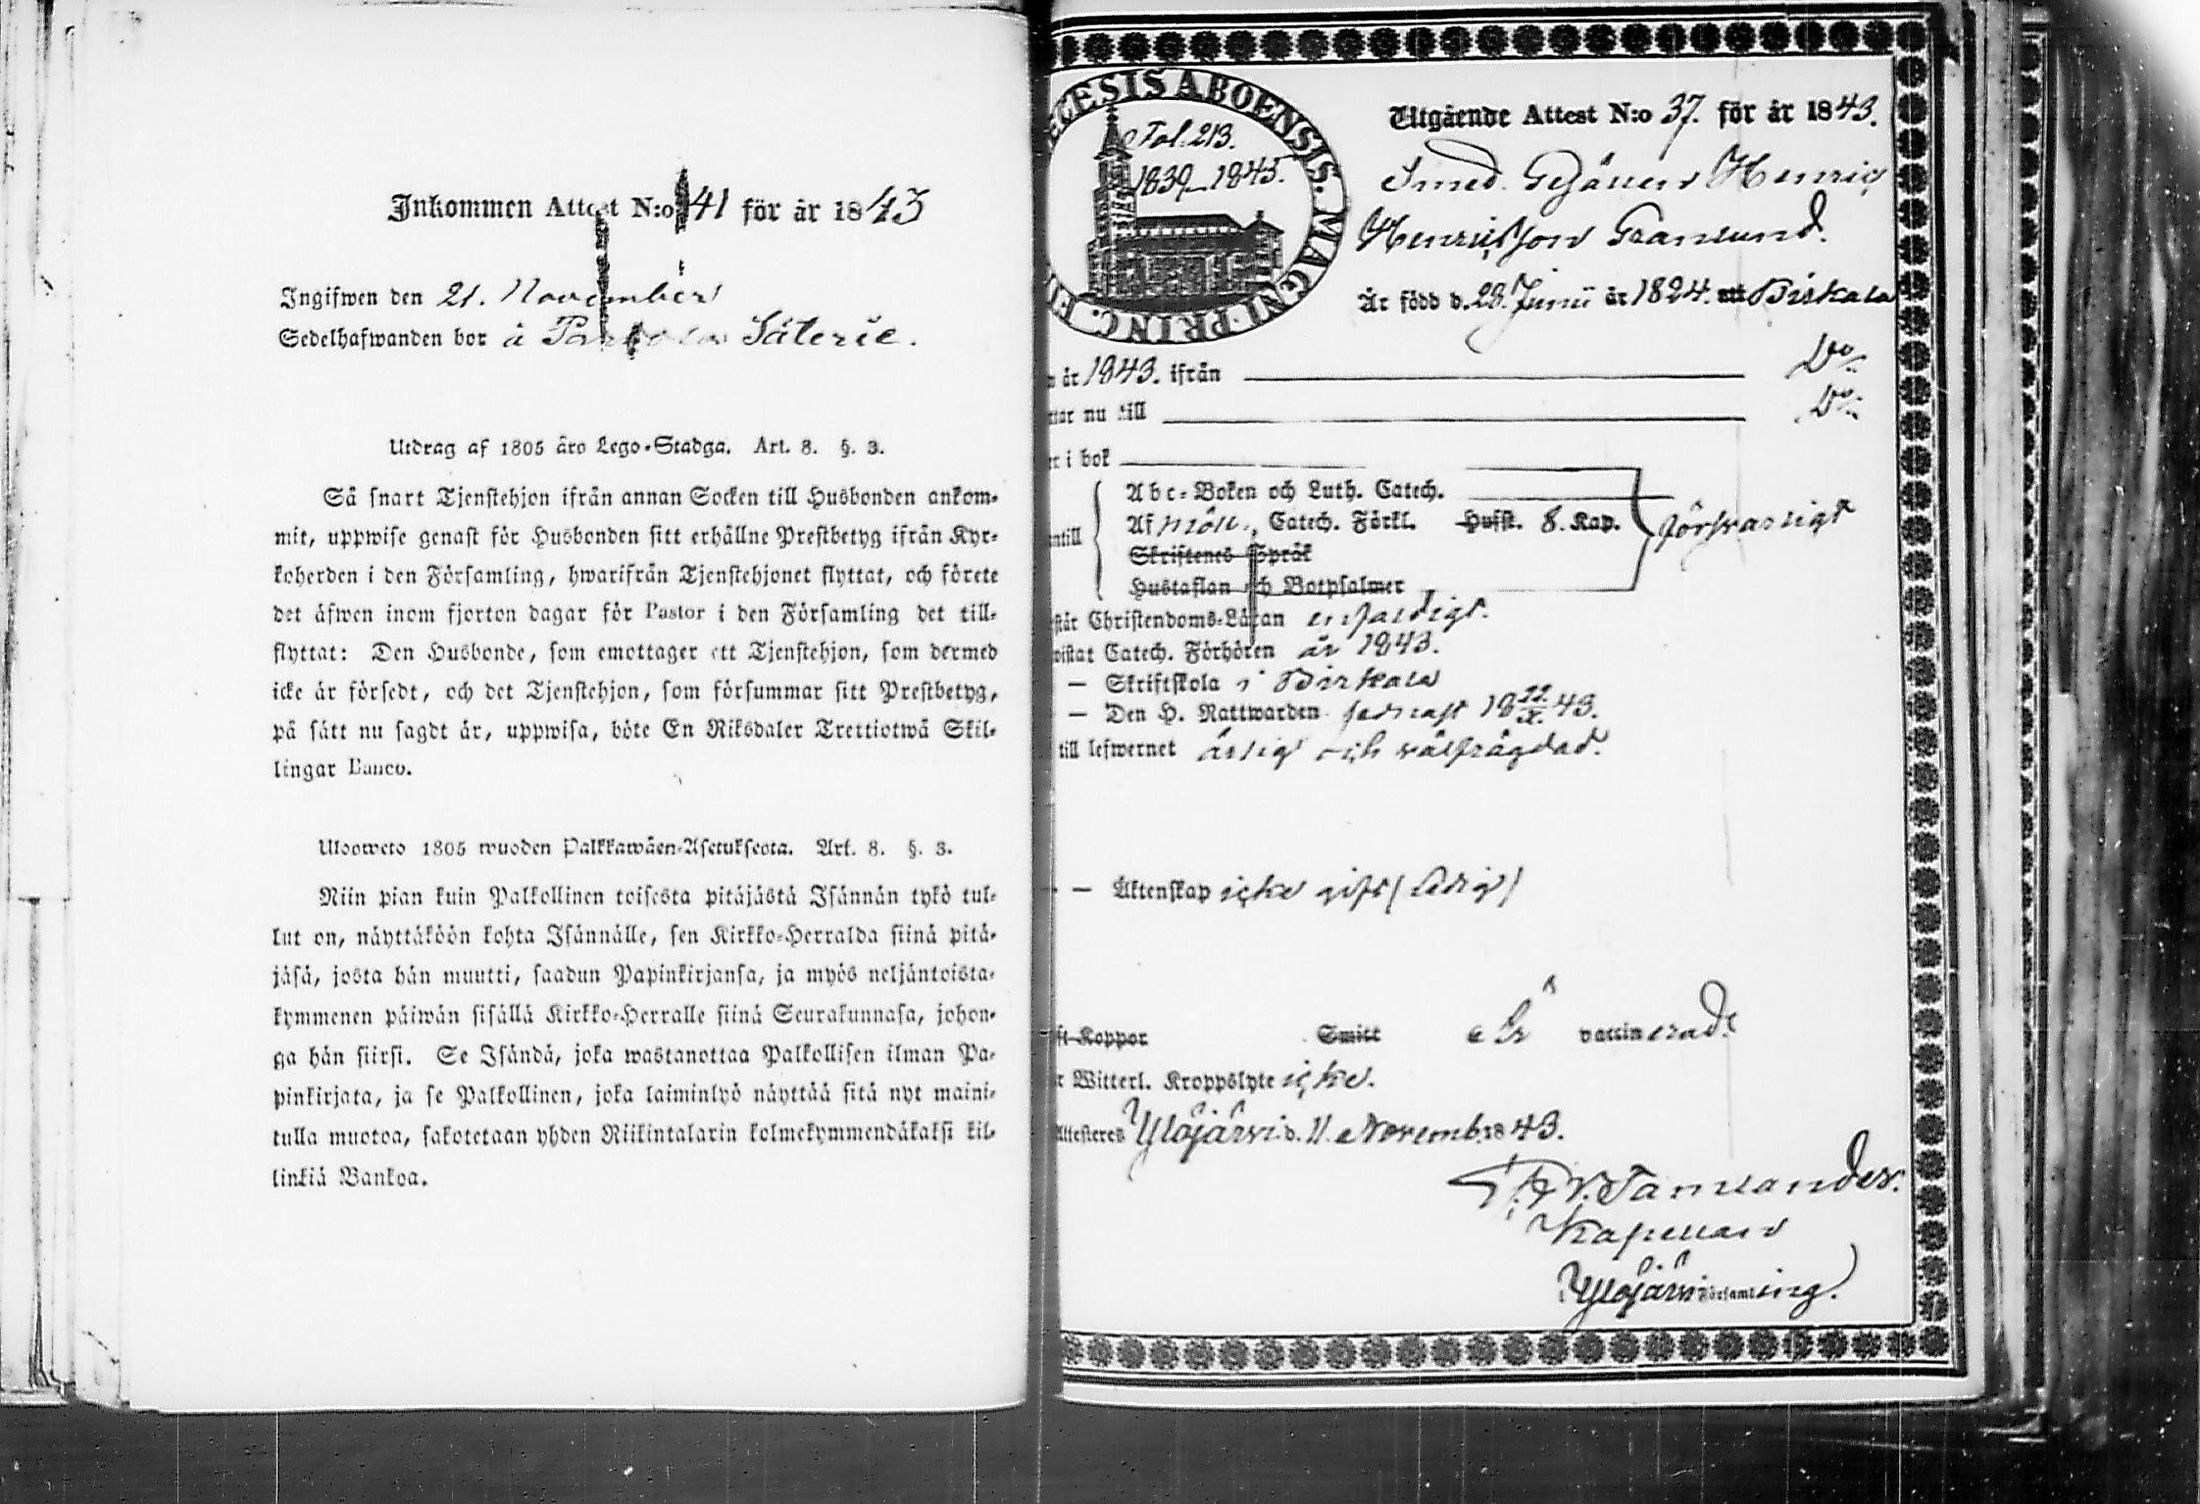 Inkommen Attest N:o 41 för år 1843
Ingifwen den 21. November
Sedelhafwanden bor å Säterie.
Utdrag af 1805 års Lego-Stadga. Art. 8. §. 3.
Så snart Tjenstehjon ifrån annan Socken till Husbonden ankom-
mit, uppwise genast för Husbonden sitt erhållne Prestbetyg ifrån Kyr-
koherden i den Församling, hwarifrån Tjenstehjonet flyttat, och förete
det äfwen inom fjorton dagar för Pastor i den Församling det till-
flyttat: Den Husbonde, som emottager ett Tjenstehjon, som dermed
icke är försedt, och det Tjenstehjon, som försummar sitt Prestbetyg,
på sätt nu sagdt är, uppwisa, böte En Riksdaler Trettiotwå Skil-
lingar Banco.
Ulosweto 1805 wuoden Palkkawäen-Asetuksesta. Art. 8. §. 3.
Niin pian kuin Palkollinen toisesta pitäjästä Isännän tykö tul-
lut on, näyttäköön kohta Isännälle, sen Kirkko-Herralda siinä pitä-
jäsä, josta hän muutti, saadun Papinkirjansa, ja myös neljäntoista-
kymmenen päiwän sisällä Kirkko-Herralle siinä Seurakunnasa, johon-
ga hän siirsi. Se Isändä, joka wastanottaa Palkollisen ilman Pa-
pinkirjata, ja se Palkollinen, joka laiminlyö näyttää sitä nyt maini-
tulla muotoa, sakotetaan yhden Riikintalarin kolmekymmendäkaksi kil-
linkiä Bankoa.
ECESIS ABOENSIS. MAGNI PRINC. FI
Fol. 213.
1839–1845.
Utgående Attest N:o 37. för år 1843.
Smed Gesällen Henric
Henricsson Granlund.
Är född d. 28. Junii år 1824. Birkala
år 1843. ifrån Do
nu till Do
i bok
Abc-Boken och Luth. Catech.
Af Catech. Förkl. Hufst. 8. Kap. försvarligt
Skriftenes Språk
Hustaflan och Botpsalmer
Christendoms-Läran enfaldigt.
Catech. Förhören år 1843.
— Skriftskola i Birkala
— Den H. Nattwarden sednast 18 22/X 43.
till lefwernet ärlig och välfrägdad.
— — Äktenskap icke gift (ledig)
Koppor Smitt är vaccinerad.
Witterl. Kroppslyte icke.
Attesteres Ylöjärvi d. 11. Novemb. 1843.
Tamlander.
Kapellan i
Ylöjärvi Församling.